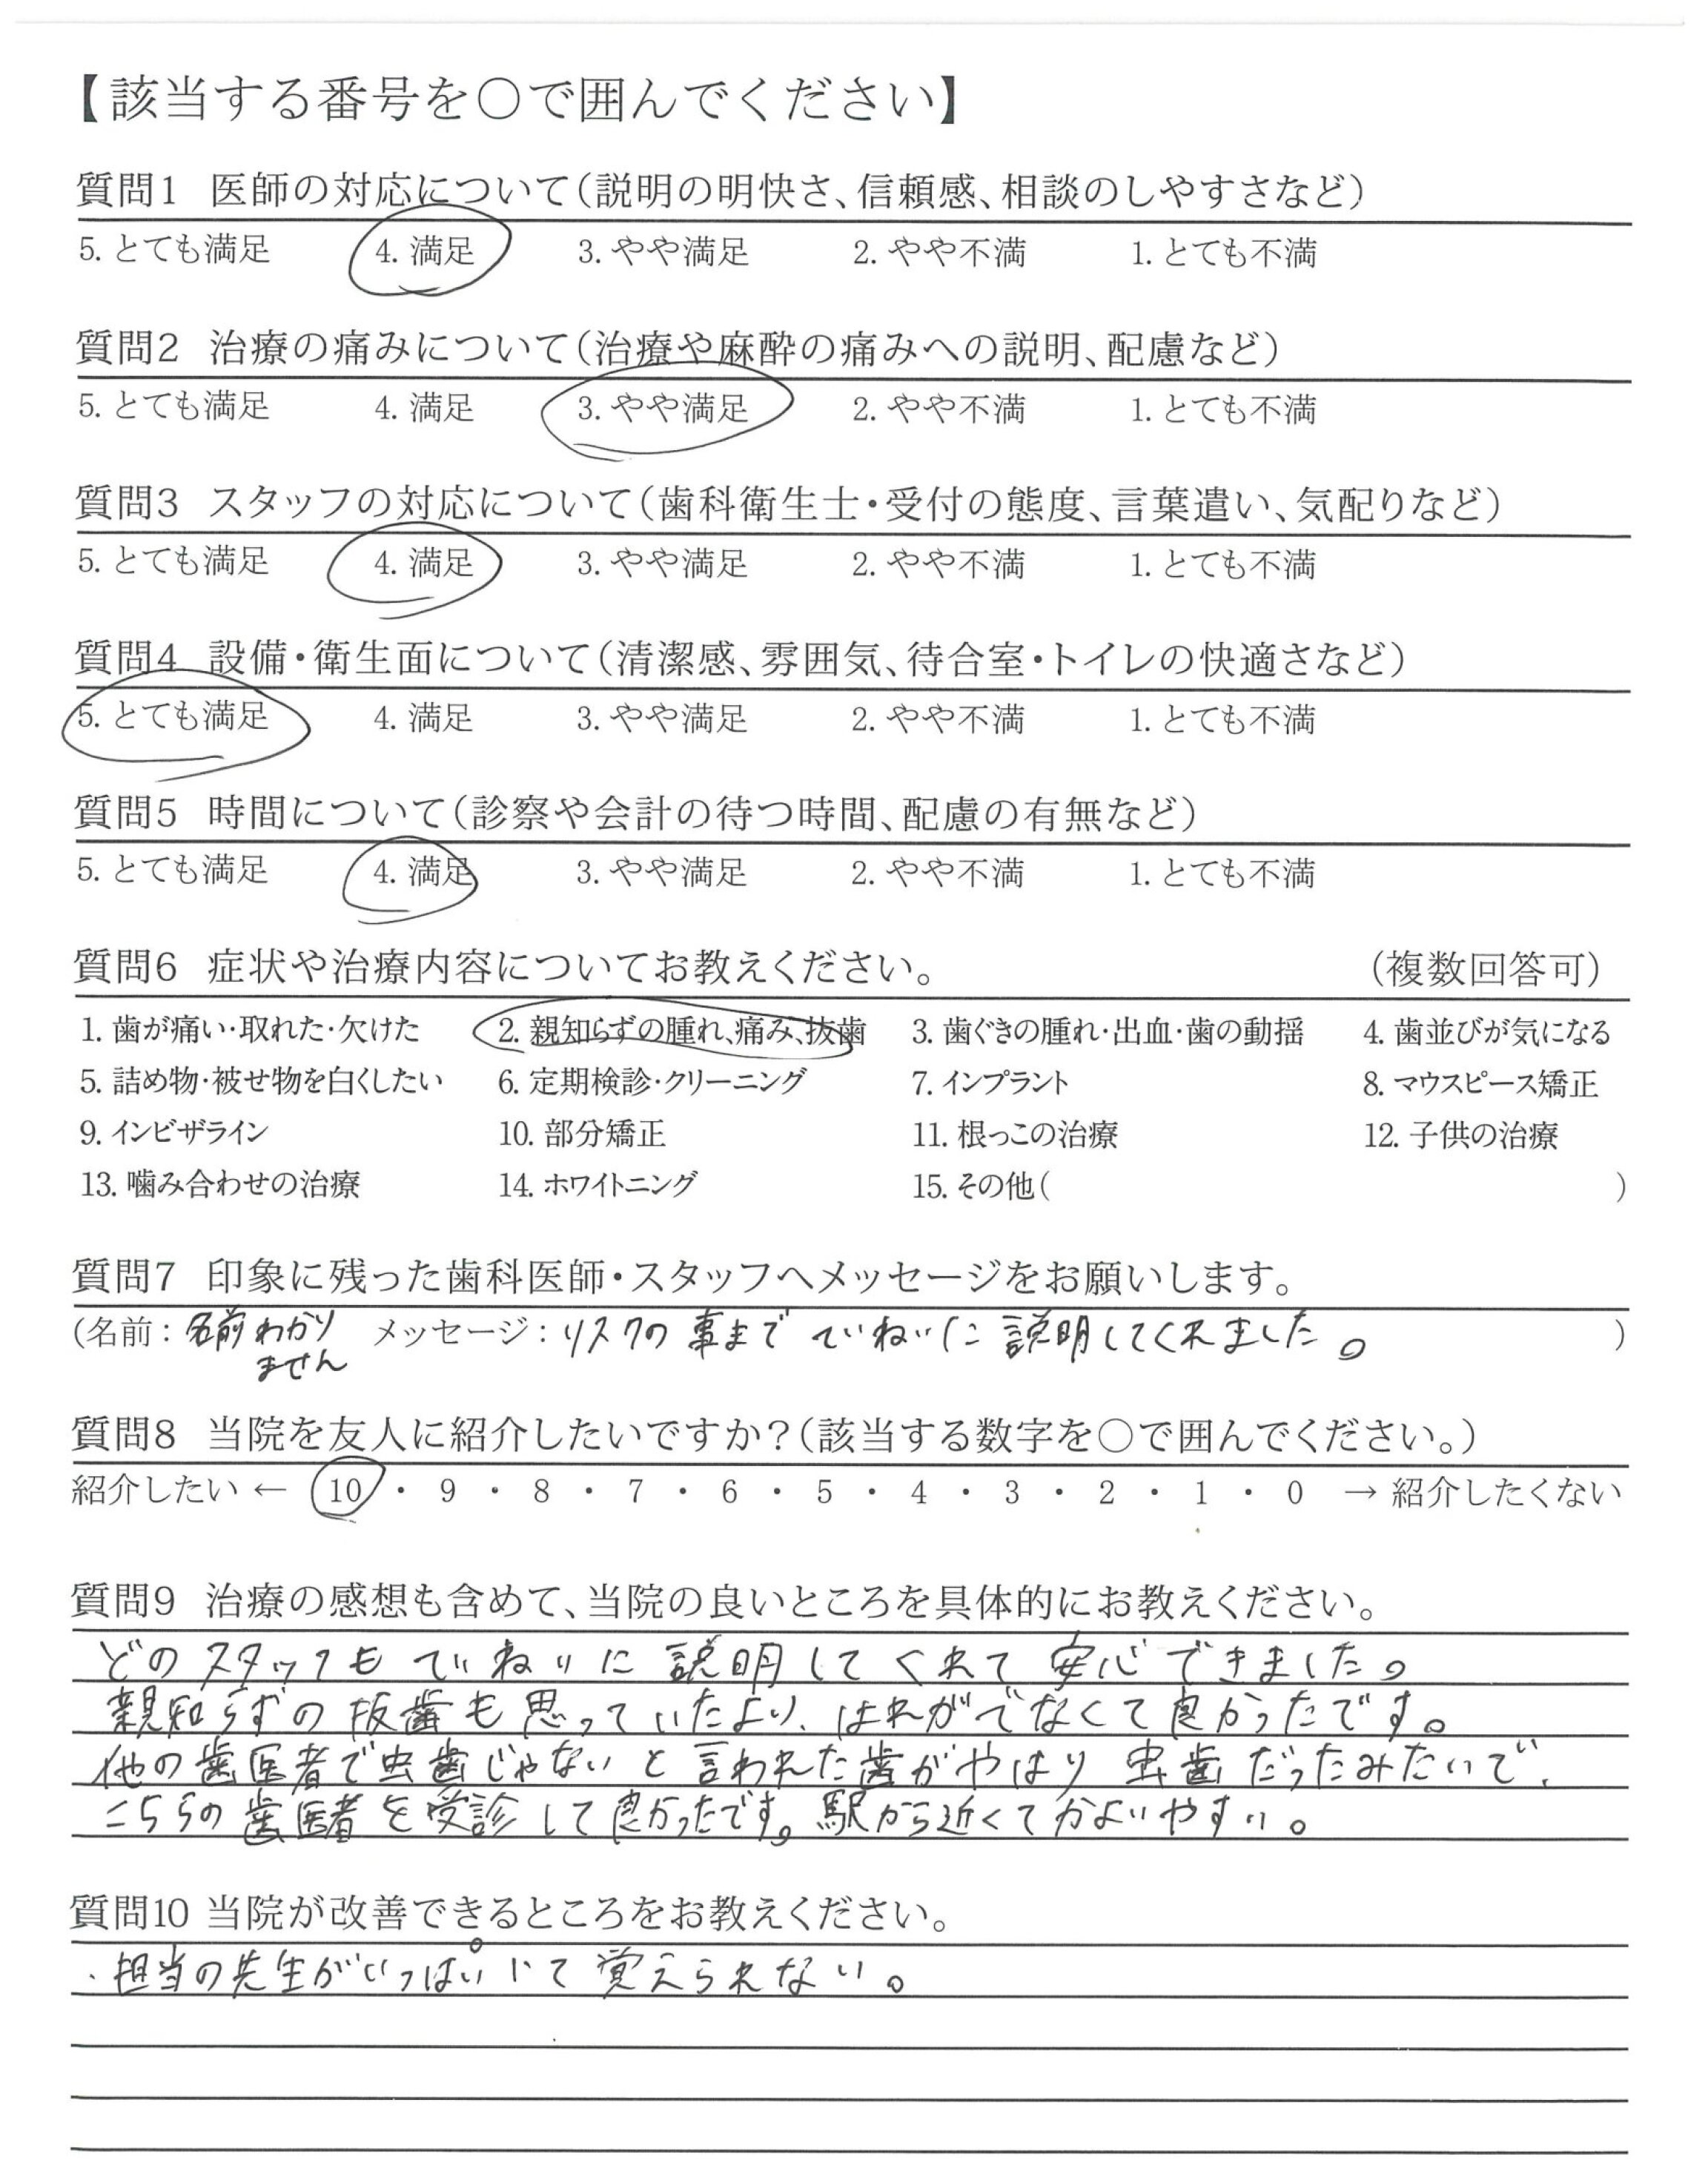 【該当する番号を〇で囲んでください】
質問1 医師の対応について(説明の明快さ、信頼感、相談のしやすさなど)
5. とても満足 4. 満足 3. やや満足 2. やや不満 1. とても不満
質問2 治療の痛みについて(治療や麻酔の痛みへの説明、配慮など)
5. とても満足 4. 満足 3. やや満足 2. やや不満 1. とても不満
質問3 スタッフの対応について(歯科衛生士・受付の態度、言葉遣い、気配りなど)
5. とても満足 4. 満足 3. やや満足 2. やや不満 1. とても不満
質問4 設備・衛生面について(清潔感、雰囲気、待合室・トイレの快適さなど)
5. とても満足 4. 満足 3. やや満足 2. やや不満 1. とても不満
質問5 時間について(診察や会計の待つ時間、配慮の有無など)
5. とても満足 4. 満足 3. やや満足 2. やや不満 1. とても不満
質問6 症状や治療内容についてお教えください。 (複数回答可)
1. 歯が痛い・取れた・欠けた 2. 親知らずの腫れ、痛み、抜歯 3. 歯ぐきの腫れ・出血・歯の動揺 4. 歯並びが気になる
5. 詰め物・被せ物を白くしたい 6. 定期検診・クリーニング 7. インプラント 8. マウスピース矯正
9. インビザライン 10. 部分矯正 11. 根っこの治療 12. 子供の治療
13. 噛み合わせの治療 14. ホワイトニング 15. その他( )
質問7 印象に残った歯科医師・スタッフへメッセージをお願いします。
(名前：名前わかり メッセージ：リスクの事まで ていねいに 説明してくれました。 )
ません
質問8 当院を友人に紹介したいですか？(該当する数字を〇で囲んでください。)
紹介したい ← 10 ・ 9 ・ 8 ・ 7 ・ 6 ・ 5 ・ 4 ・ 3 ・ 2 ・ 1 ・ 0 → 紹介したくない
質問9 治療の感想も含めて、当院の良いところを具体的にお教えください。
どのスタッフも ていねいに 説明してくれて 安心できました。
親知らずの 抜歯も 思っていたより、はれがでなくて良かったです。
他の歯医者で虫歯じゃないと言われた歯がやはり 虫歯だったみたいで、
こちらの歯医者を受診して良かったです。駅から近くてかよいやすい。
質問10 当院が改善できるところをお教えください。
・担当の先生がいっぱいいて覚えられない。